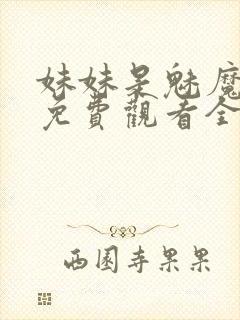 妹妹是魅魔
免費觀看全
西園寺果果